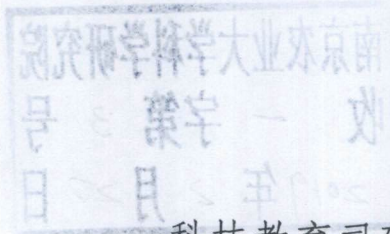 南京农业大学科学研究院
收一字第3号
2017年2月20日
科技教育司